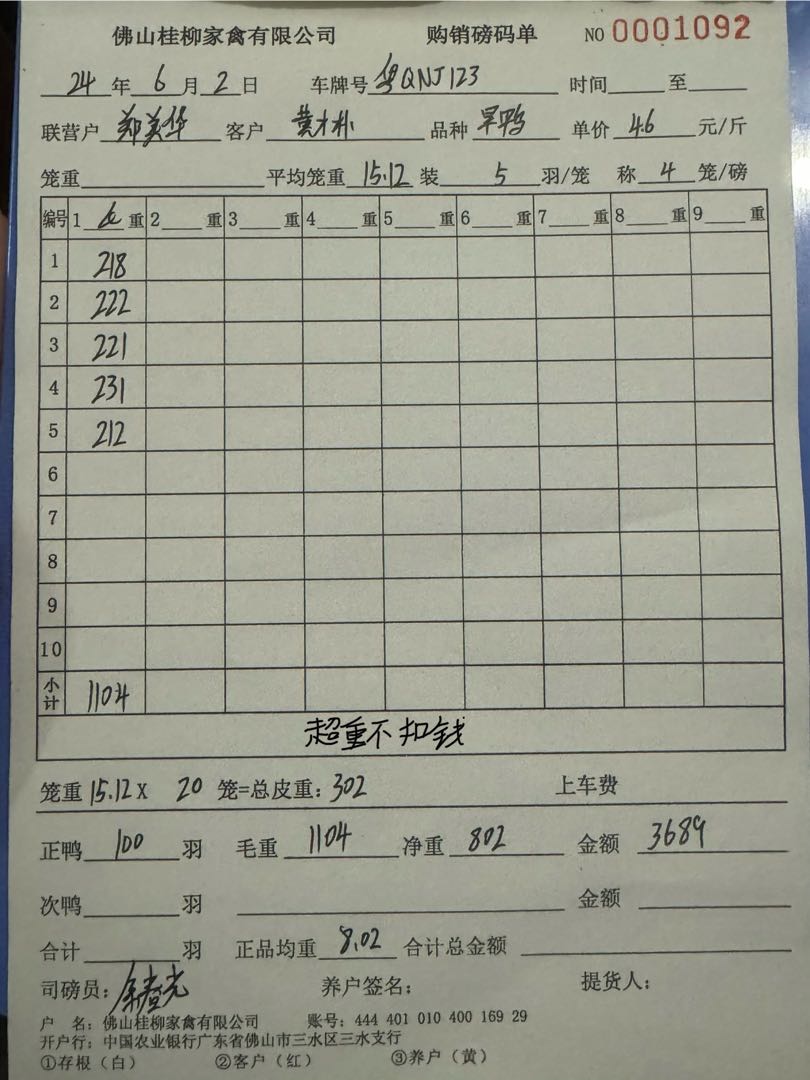 佛山桂柳家禽有限公司 购销磅码单 NO 0001092
24 年 6 月 2 日 车牌号 粤QNJ123 时间 至
联营户 郑美华 客户 黄才朴 品种 旱鸭 单价 4.6 元/斤
笼重 平均笼重 15.12 装 5 羽/笼 称 4 笼/磅
编号 1 重 2 重 3 重 4 重 5 重 6 重 7 重 8 重 9 重
1 218
2 222
3 221
4 231
5 212
6
7
8
9
10
小计 1104
超重不扣钱
笼重 15.12 X 20 笼=总皮重: 302 上车费
正鸭 100 羽 毛重 1104 净重 802 金额 3689
次鸭 羽 金额
合计 羽 正品均重 8.02 合计总金额
司磅员: 养户签名: 提货人:
户 名: 佛山桂柳家禽有限公司 账号: 444 401 010 400 169 29
开户行: 中国农业银行广东省佛山市三水区三水支行
①存根(白) ②客户(红) ③养户(黄)